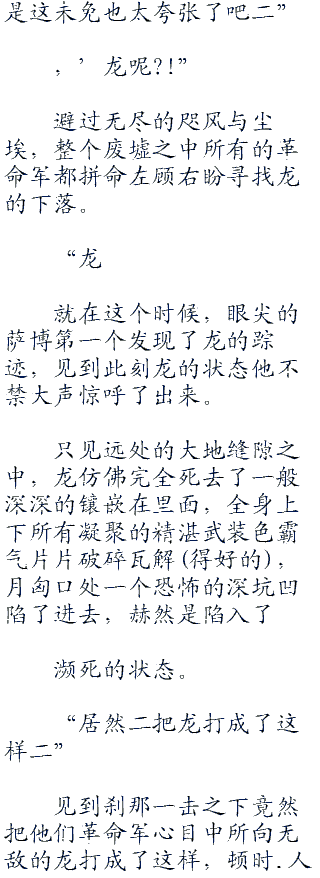 是这未免也太夸张了吧二”
，’龙呢?!”
避过无尽的咫风与尘
埃，整个废墟之中所有的革
命军都拼命左顾右盼寻找龙
的下落。
“龙
就在这个时候，眼尖的
萨博第一个发现了龙的踪
迹，见到此刻龙的状态他不
禁大声惊呼了出来。
只见远处的大地缝隙之
中，龙仿佛完全死去了一般
深深的镶嵌在里面，全身上
下所有凝聚的精湛武装色霸
气片片破碎瓦解(得好的)，
月匈口处一个恐怖的深坑凹
陷了进去，赫然是陷入了
濒死的状态。
“居然二把龙打成了这
样二”
见到刹那一击之下竟然
把他们革命军心目中所向无
敌的龙打成了这样，顿时.人